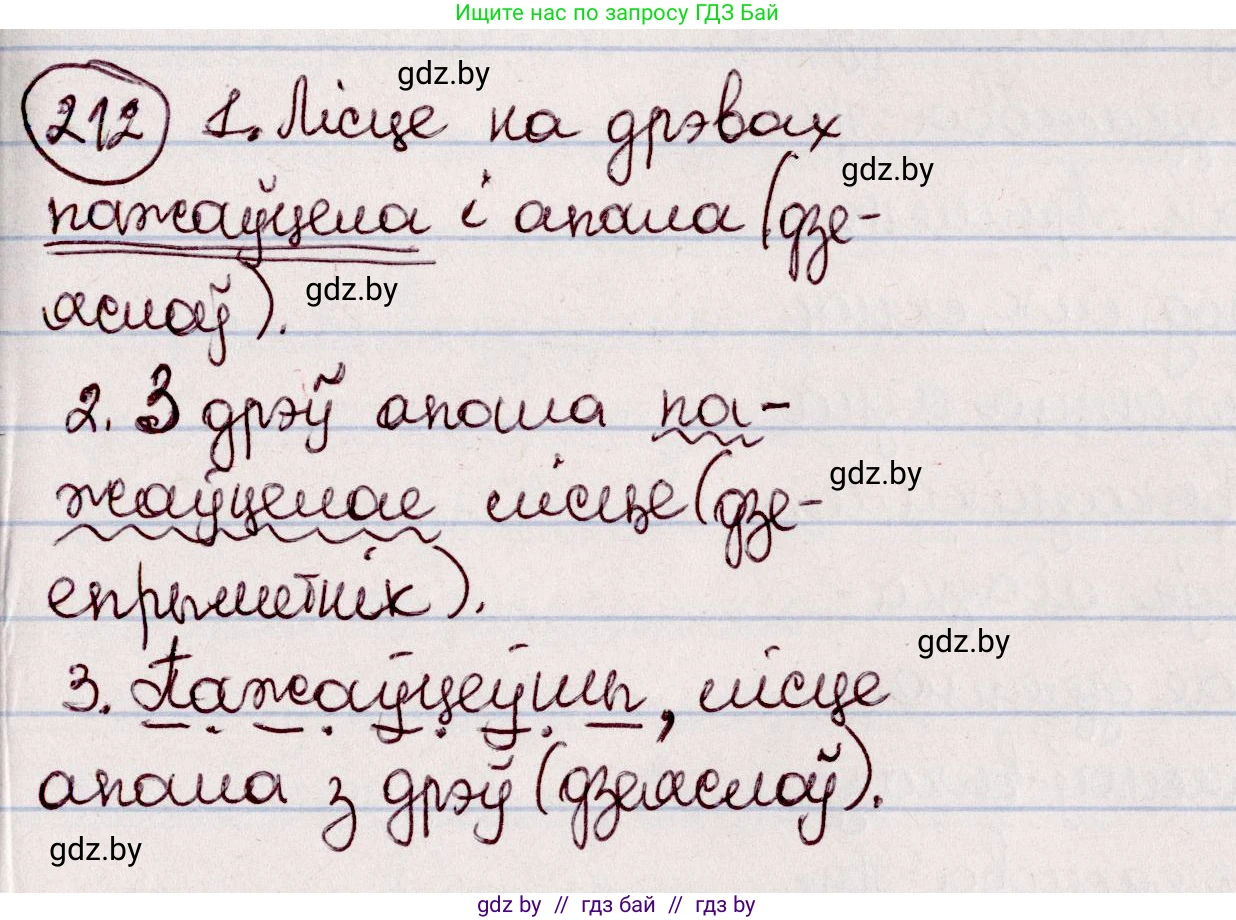 Ищите нас по запросу ГДЗ Бай
gdz.by
212 1. Лісце на дрэвах
gdz.by
пажаўцела і апала (дзе-
gdz.by
яслоў).
2. З дрэў апала па-
gdz.by
жаўцелае лісце (дзе-
епрыметнік).
gdz.by
3. Пажаўцеўшы, лісце
апала з дрэў (дзеяслоў).
gdz.by
gdz by // гдз бай // гдз by